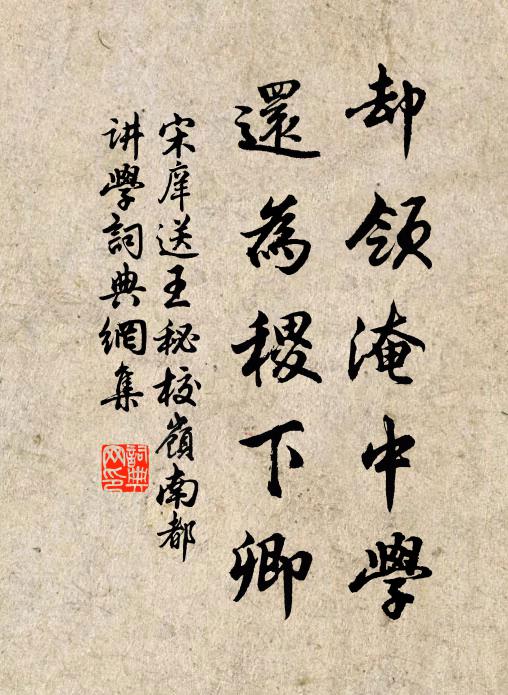 却領淹中學
還為稷下卿
宋庠送王秘校嶺南都
讲學詞典網集
詞典网印